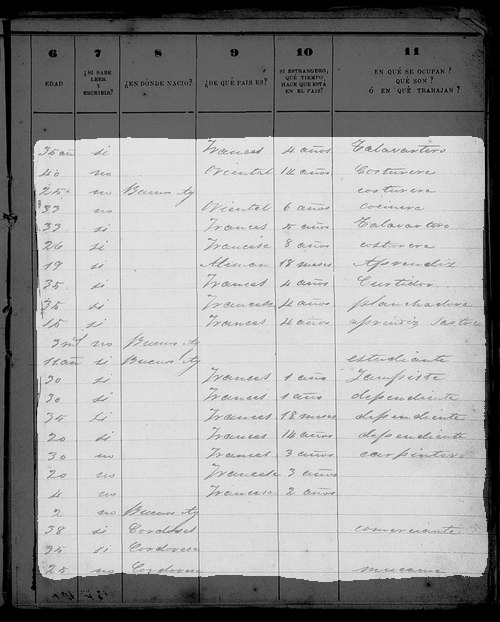 6 7 8 9 10 11
EDAD ¿SI SABE LEER Y ESCRIBIR? ¿EN DÓNDE NACIÓ? ¿DE QUÉ PAIS ES? SI ESTRANGERO, QUÉ TIEMPO HACE QUE ESTÁ EN EL PAIS? EN QUÉ SE OCUPAN? QUÉ SON? Ó EN QUÉ TRABAJAN?
35 añ si Frances 4 años Talavartero
40 no Oriental 14 años Costurera
25 no Buenos Ay costurera
33 no Oriental 6 años cocinera
33 si Frances 5 años Talavartero
26 si Francesa 8 años costurera
19 si Aleman 18 meses Aprendiz
35 si Frances 4 años Curtidor
35 si Francesa 4 años planchadora
15 si Frances 4 años aprendiz sastre
3 no Buenos Ay
11 añ si Buenos Ay estudiante
20 si Frances 1 año
30 si Frances 1 año dependiente
34 si Frances 18 meses dependiente
20 si Frances 14 años dependiente
30 no Frances 3 años carpintero
20 no Francesa 3 años
4 no Francesa 2 años
2 no Buenos Ay
38 si Cordoves comerciante
35 si Cordovesa
25 no Cordovesa mucama